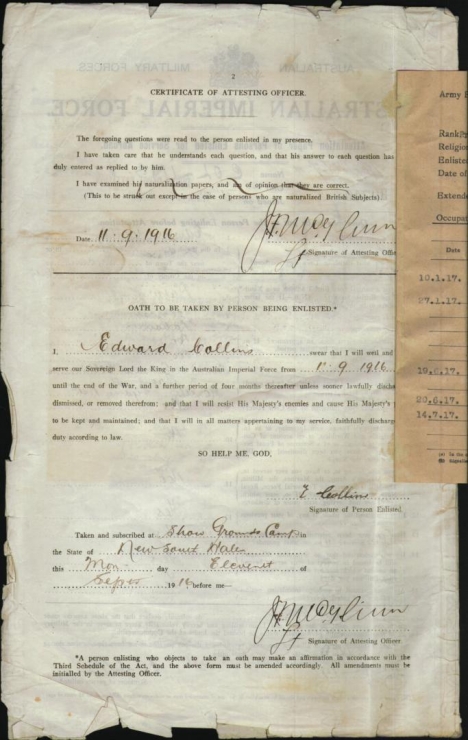 2
CERTIFICATE OF ATTESTING OFFICER.
The foregoing questions were read to the person enlisted in my presence.
I have taken care that he understands each question, and that his answer to each question has
duly entered as replied to by him.
I have examined his naturalization papers, and am of opinion that they are correct.
(This to be struck out except in the case of persons who are naturalized British Subjects)
Date 11.9.1916
Lt Signature of Attesting Office
OATH TO BE TAKEN BY PERSON BEING ENLISTED.*
I, Edward Collins swear that I will well and
serve our Sovereign Lord the King in the Australian Imperial Force from 11.9.1916
until the end of the War, and a further period of four months thereafter unless sooner lawfully discha
dismissed, or removed therefrom; and that I will resist His Majesty's enemies and cause His Majesty's
to be kept and maintained; and that I will in all matters appertaining to my service, faithfully discharge
duty according to law.
SO HELP ME, GOD.
E Collins
Signature of Person Enlisted.
Taken and subscribed at Show Grounds Camp in
the State of New South Wales
this Mon day Elevenet of
Septr 1916 before me—
Lt
Signature of Attesting Officer
*A person enlisting who objects to take an oath may make an affirmation in accordance with the
Third Schedule of the Act, and the above form must be amended accordingly. All amendments must be
initialled by the Attesting Officer.
Army F
Rank
Religion
Enliste
Date of
Extende
Occupa
Date
10.1.17.
27.1.17.
19.6.17.
20.6.17.
14.7.17.